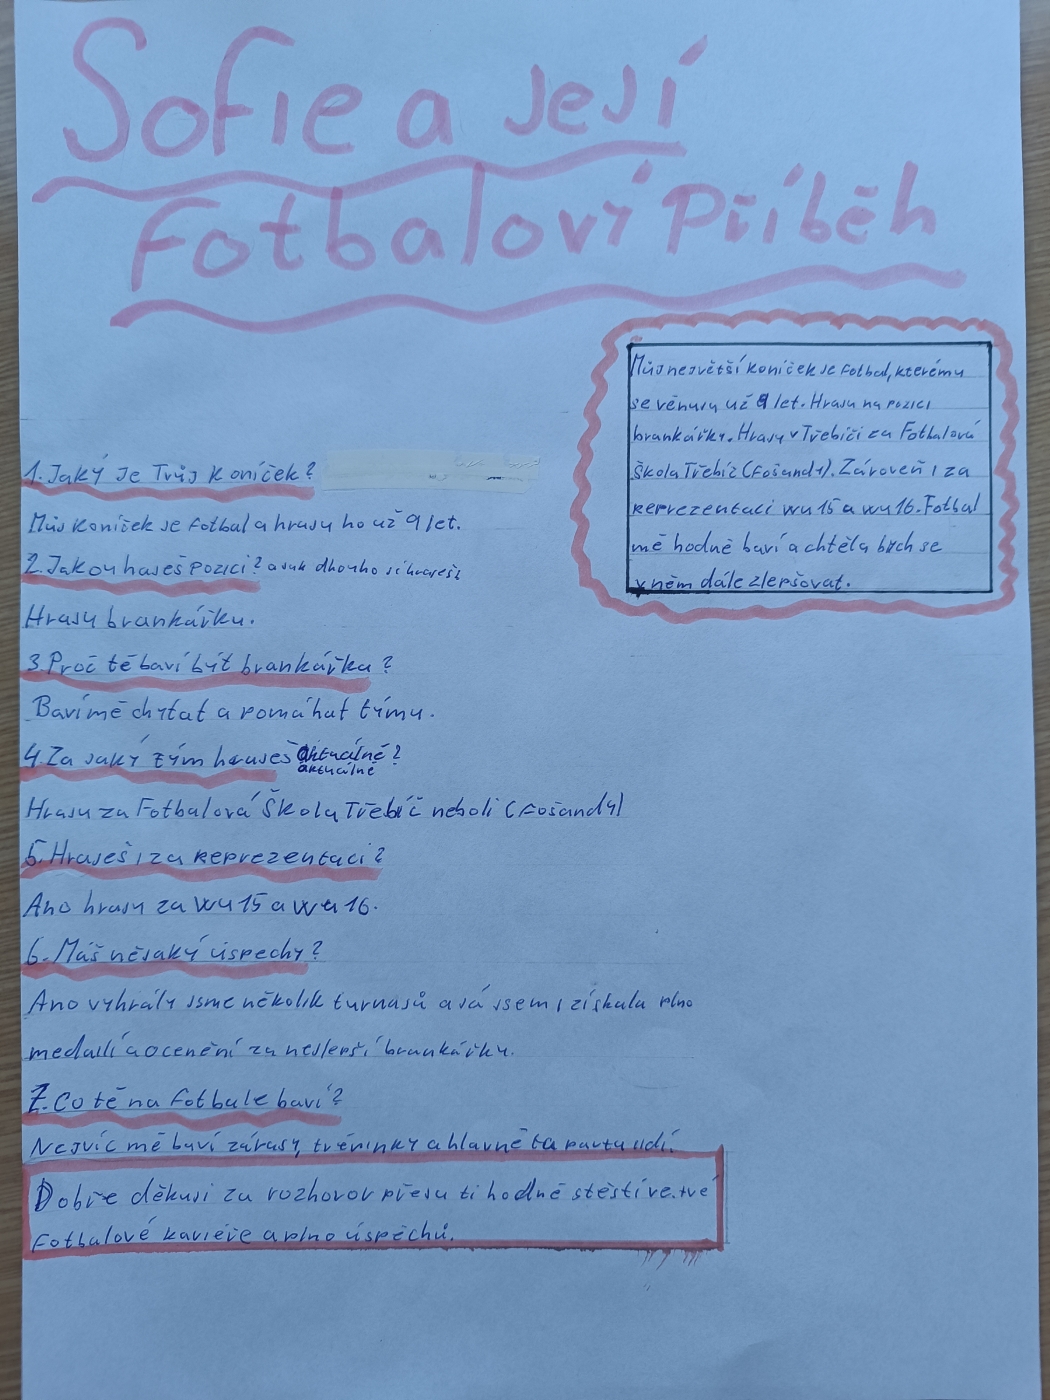 Sofie a její
Fotbaloví Příběh
Můj největší koníček je Fotbal, kterému
se věnuju už 9 let. Hraju na pozici
brankářky. Hraju v Třebíči za Fotbalová
škola Třebíč (Fošandy). Zároveň i za
reprezentaci wu 15 a wu 16. Fotbal
mě hodně baví a chtěla bych se
v něm dále zlepšovat.
1. Jaký je Tvůj koníček?
Můj koníček je fotbal a hraju ho už 9 let.
2. Jakou haješ pozici? a jak dlouho ji hraješ?
Hraju brankářku.
3. Proč tě baví být brankářka?
Baví mě chytat a pomáhat týmu.
4. Za jaký tým hraješ aktuálně?
aktuálně
Hraju za Fotbalová Škola Třebíč neboli (Fošandy)
5. Hraješ i za reprezentaci?
Ano hraju za wu 15 a wu 16.
6. Máš nějaký úspechy?
Ano vyhrály jsme několik turnajů a já jsem i získala plno
medailí a ocenění za nejlepší brankářky.
7. Co tě na fotbale baví?
Nejvíc mě baví zápasy, tréninky a hlavně ta parta lidí.
Dobře děkuji za rozhovor přeju ti hodně stěstí ve tvé
Fotbalové kariéře a plno úspěchů.